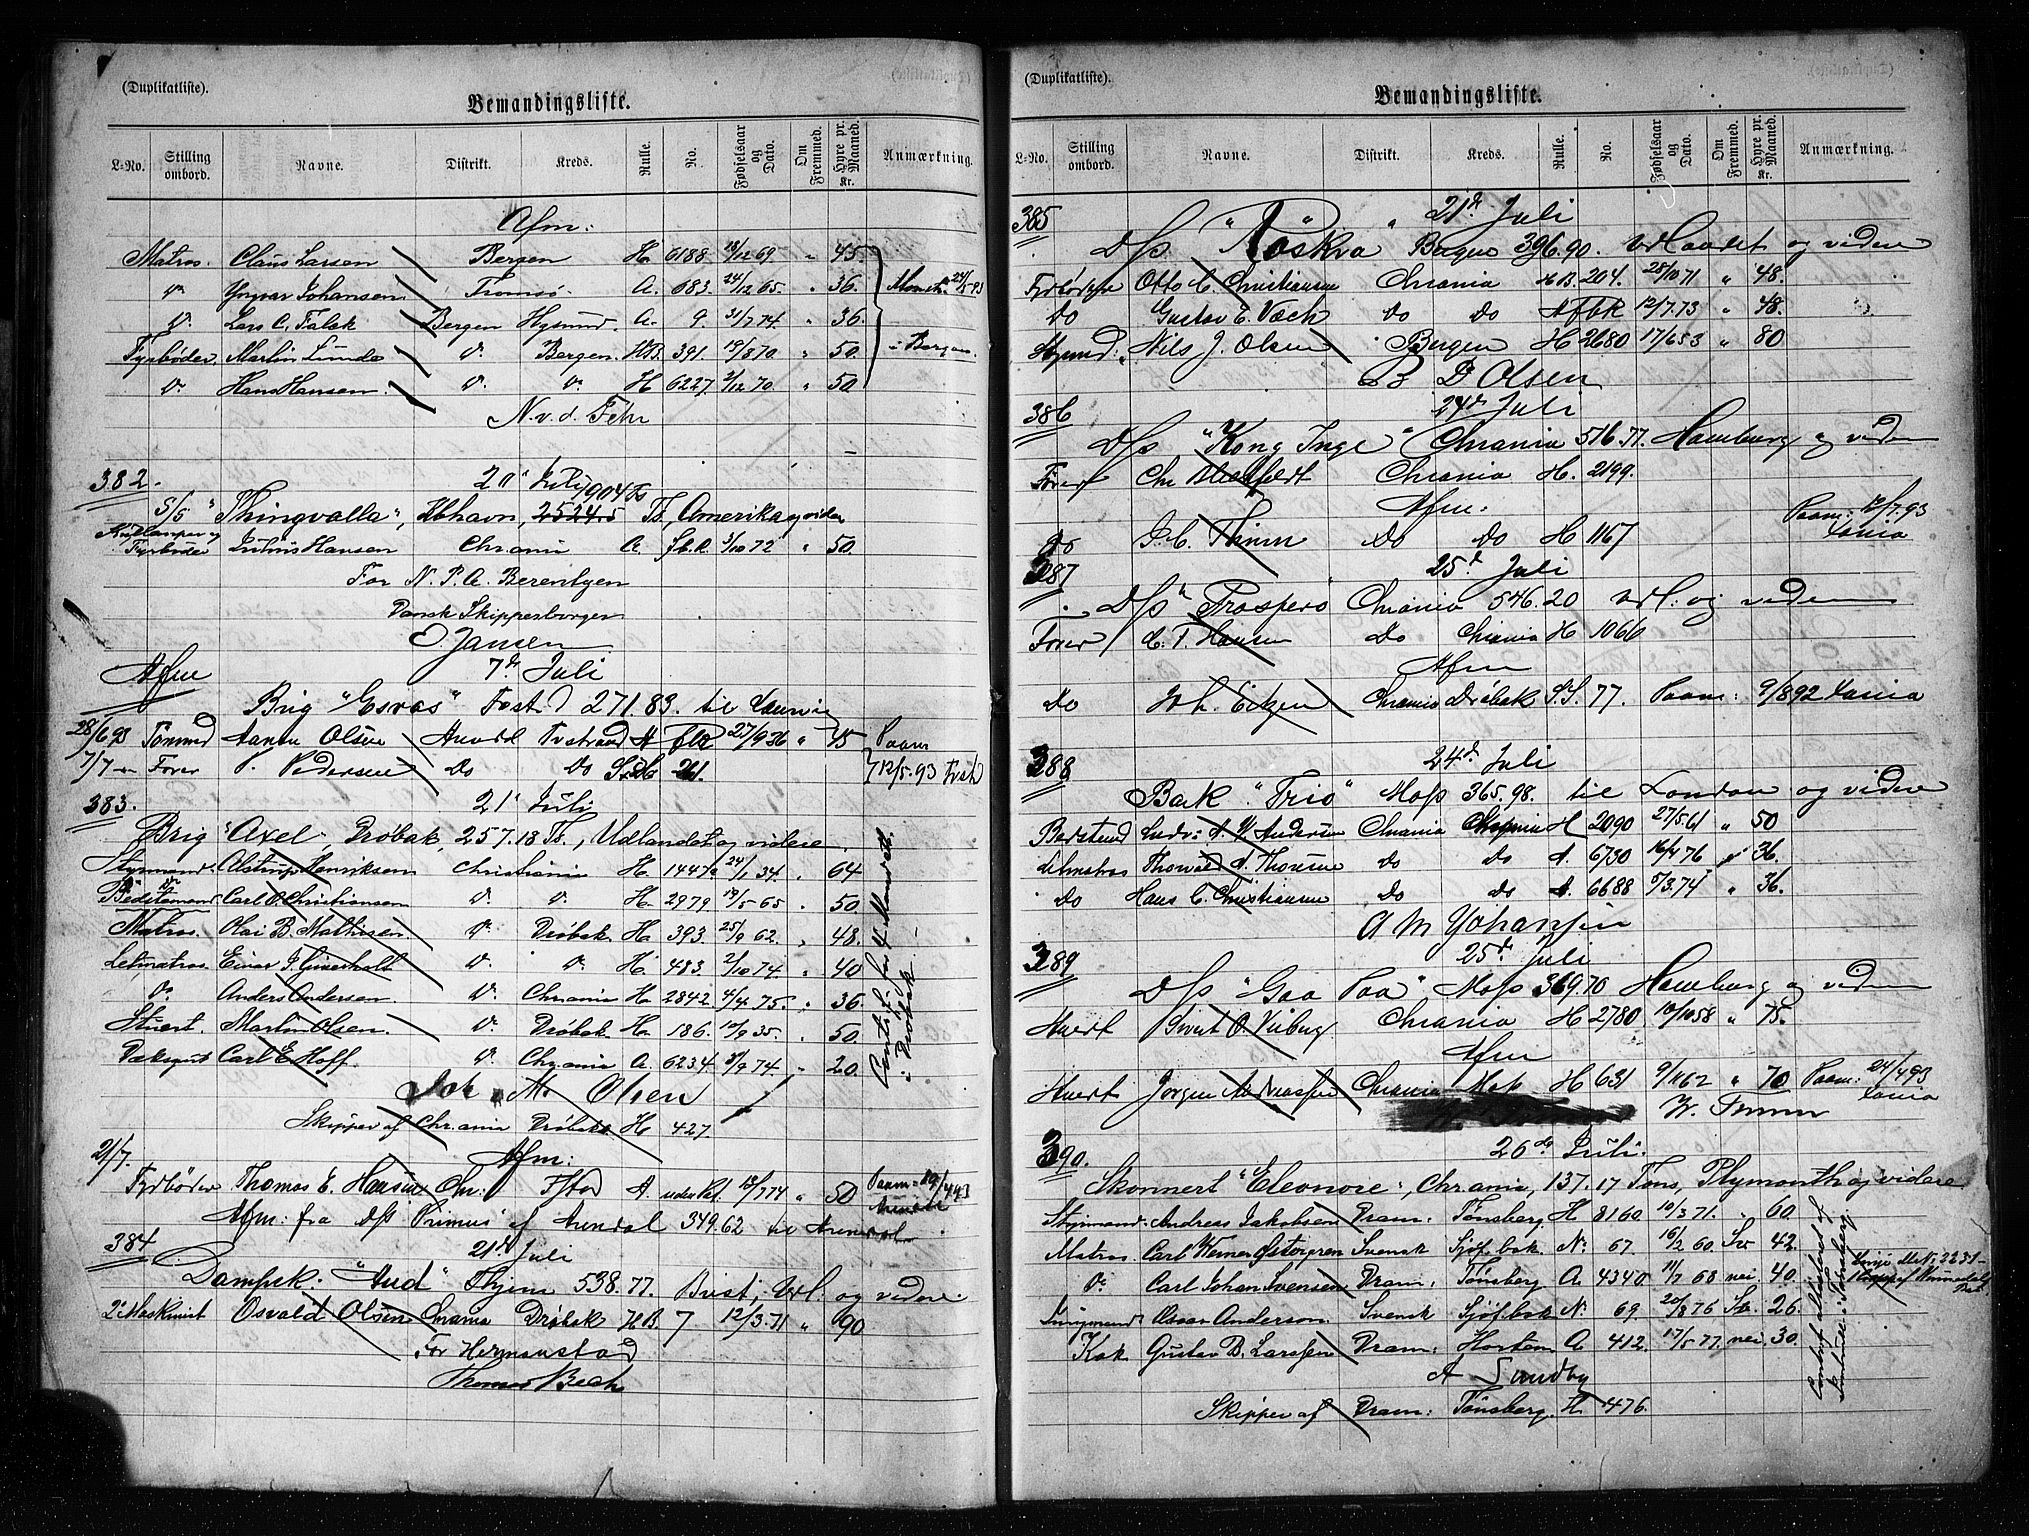 (Duplikatliste).
Bemandingsliste.
L-No. Stilling ombord. Navne. Distrikt. Kreds. Rulle. No. Fødselsaar og Dato. Om Fremmed. Hyre pr. Maaned. Kr. Anmærkning.
Afm:
Matros. Claus Larsen Bergen H. 6188 18/12 69 " 45
do Yngvar Johansen Tromsø A. 683. 24/12 65. " 36.
do. Lars C. Falck Bergen A. 9. 31/7 74. " 36.
Fyrbøder, Martin Lunde do. Bergen. HB. 391. 19/8 70 " 50. i Bergen.
do Hans Hansen. do. do. H 6227. 2/12 70 " 50.
N. v. d. Fehr
382. 20 Juli
904 Ts
S/S "Thingvalla", Kbhavn, 2524.5 Ts, Amerika og videre
Fyrbøder Julius Hansen Chrania A. fb.A. 3/10 72 " 50.
For N. P. A. Berentzen
Dansk Skippersborger
O. Jansen
Afm 7de Juli
Brig "Esras" 271.83. til
28/6 93 Tømmd Olsen Tvstrand A FBR 27/9 36 " 45 Paam
7/7 - Fører P. Pedersen Do Do 261. 12/5. 93 Tvst
383. 21 Juli
Brig "Axel", Drøbak, 257.18 Ts, Udlandet og videre.
Styrmand. Alstrup Henriksen Christiania H. 1447a 24/1 34. " 64
Bedstemand Carl O. Christiansen do do. H. 2979. 19/5 65 " 50.
Matros. Olai B. Mathisen. do Drøbak H. 393. 25/9 62. " 48.
Letmatros. Einar do. do. H. 483. 2/10 74. " 40
do Anders Andersen. do. Chrania H. 2842. 4/4 75. " 36.
Stuert. Martin Olsen. do Drøbak H. 186. 10/9 35. " 50.
Dæksgut Carl E. Hoff. do. Chrania A. 6234. 3/9 74. - 20.
M. Olsen
Skipper af Chrania Drøbak H. 427.
21/7. Afm:
Fyrbøder Thomas E. Hansen Chr: A. uden Rul. 13/7 74 " 50 Paam: 19/4 93
Afm: fra D/s "Primus" af Arendal 349.62 til Arendal
384 21de Juli
Dampsk. "Aud" Thjem 538.77. Brist, Udl. og videre.
2' Maskinist Osvald Olsen Chrania Drøbak H.B. 7 12/3.71 " 90
For Hermanstad
Thomas Bech
(Duplikatliste).
Bemandingsliste.
L-No. Stilling ombord. Navne. Distrikt. Kreds. Rulle. No. Fødselsaar og Dato. Om Fremmed. Hyre pr. Maaned. Kr. Anmærkning.
385 21de Juli
D/s "Røskva" Bergen 396.90. Udlandet og videre
Fyrbøder Otto C. Christiansen Chrania HB. 204. 28/10 71 " 48.
Do Gustav E. Væck Do Do A fbk 12/7.73 " 48.
Stymd. Nils J. Olsen Bergen H 2680 17/6 53 " 80
B D Olsen
386 24de Juli
D/s "Kong Inge" Chrania 516.77. Hamburg og videre
Fører Chr Blechfeldt Chrania H. 2199.
Afm.
Do Thimm Do Do H 1167 Paam: 12/7.93 Xania
387 25de Juli
D/s "Prospero" Chrania 546.20 Udl: og videre
Fører C. T. Hansen Do Chrania H 1066
Afm
Do Joh. Eitzen Chrania Drøbak S.S. 77. Paam: 9/8 92 Xania
388 24de Juli
Bark "Trio" Moss 365.98. til London og videre
Bedstmd Ludv: A. Andersen Chrania Chrania H 2090 27/5 61 " 50
Letmatros Thorvald A. Thoresen Do Do A. 6730 16/4 76 " 36.
Do Hans C. Christiansen Do Do A. 6688 5/3.74 " 36.
A M Johansen
389 25de Juli
D/s "Gaa Paa" Moss 369.70 Hamburg og videre
Stuert Sivert O. Viiberg Chrania H 2780 10/10 58 " 75.
Afm
Stuert Jørgen Andreassen Chrania Moss H 631 9/11 62 " 70 Paam: 24/4 93 Xania
W. Thimm
390. 26de Juli.
Skonnert "Eleonore", Chrania, 137.17 Tons, Plymouth og videre
Styrmand. Andreas Jakobsen Dram: Tønsberg H 8160 10/3 71. " 60.
Matros. Carl Werner Østergren Svensk Sjøf. bok No. 67. 16/2 60. Sv 42.
do. Carl Johan Svensen Dram: Tønsberg A 4340 11/7 68 nei 40.
Jungmand Oscar Anderson. Svensk Sjøf bok No. 69. 20/8 76 Sv. 26.
Kok Gustav B. Larssen Dram: Horten A 412. 17/5 77. nei 30.
A Sundby
Skipper af Dram: Tønsberg. H 476.